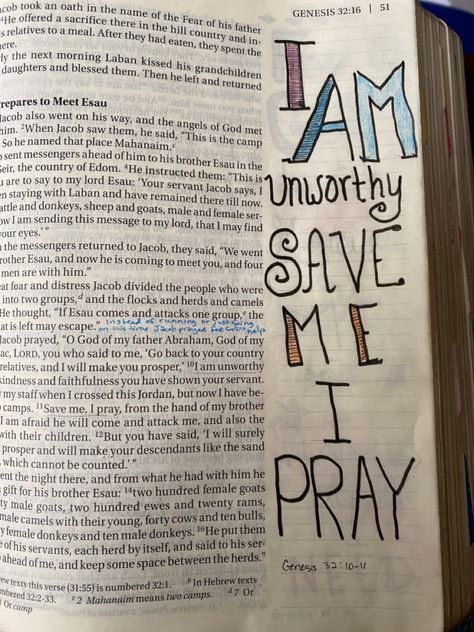 GENESIS 32:16 | 51
acob took an oath in the name of the Fear of his father
He offered a sacrifice there in the hill country and in-
s relatives to a meal. After they had eaten, they spent the
here.
ly the next morning Laban kissed his grandchildren
daughters and blessed them. Then he left and returned
repares to Meet Esau
Jacob also went on his way, and the angels of God met
him. 2When Jacob saw them, he said, “This is the camp
So he named that place Mahanaim.c
sent messengers ahead of him to his brother Esau in the
Seir, the country of Edom. 4He instructed them: “This is
u are to say to my lord Esau: ‘Your servant Jacob says, I
en staying with Laban and have remained there till now.
attle and donkeys, sheep and goats, male and female ser-
ow I am sending this message to my lord, that I may find
your eyes.’ ”
the messengers returned to Jacob, they said, “We went
rother Esau, and now he is coming to meet you, and four
men are with him.”
eat fear and distress Jacob divided the people who were
into two groups,d and the flocks and herds and camels
He thought, “If Esau comes and attacks one group,e the
at is left may escape.”
instead of running or just going
on his time Jacob prayed for God's help
Jacob prayed, “O God of my father Abraham, God of my
ac, LORD, you who said to me, ‘Go back to your country
relatives, and I will make you prosper,’ 10I am unworthy
kindness and faithfulness you have shown your servant.
my staff when I crossed this Jordan, but now I have be-
camps. 11Save me, I pray, from the hand of my brother
I am afraid he will come and attack me, and also the
with their children. 12But you have said, ‘I will surely
prosper and will make your descendants like the sand
which cannot be counted.’ ”
ent the night there, and from what he had with him he
gift for his brother Esau: 14two hundred female goats
ty male goats, two hundred ewes and twenty rams,
male camels with their young, forty cows and ten bulls,
y female donkeys and ten male donkeys. 16He put them
e of his servants, each herd by itself, and said to his ser-
ahead of me, and keep some space between the herds.”
ew texts this verse (31:55) is numbered 32:1. b In Hebrew texts
mbered 32:2-33. c 2 Mahanaim means two camps. d 7 Or
Or camp
I
AM
unworthy
SAVE
ME
I
PRAY
Genesis 32:10-11